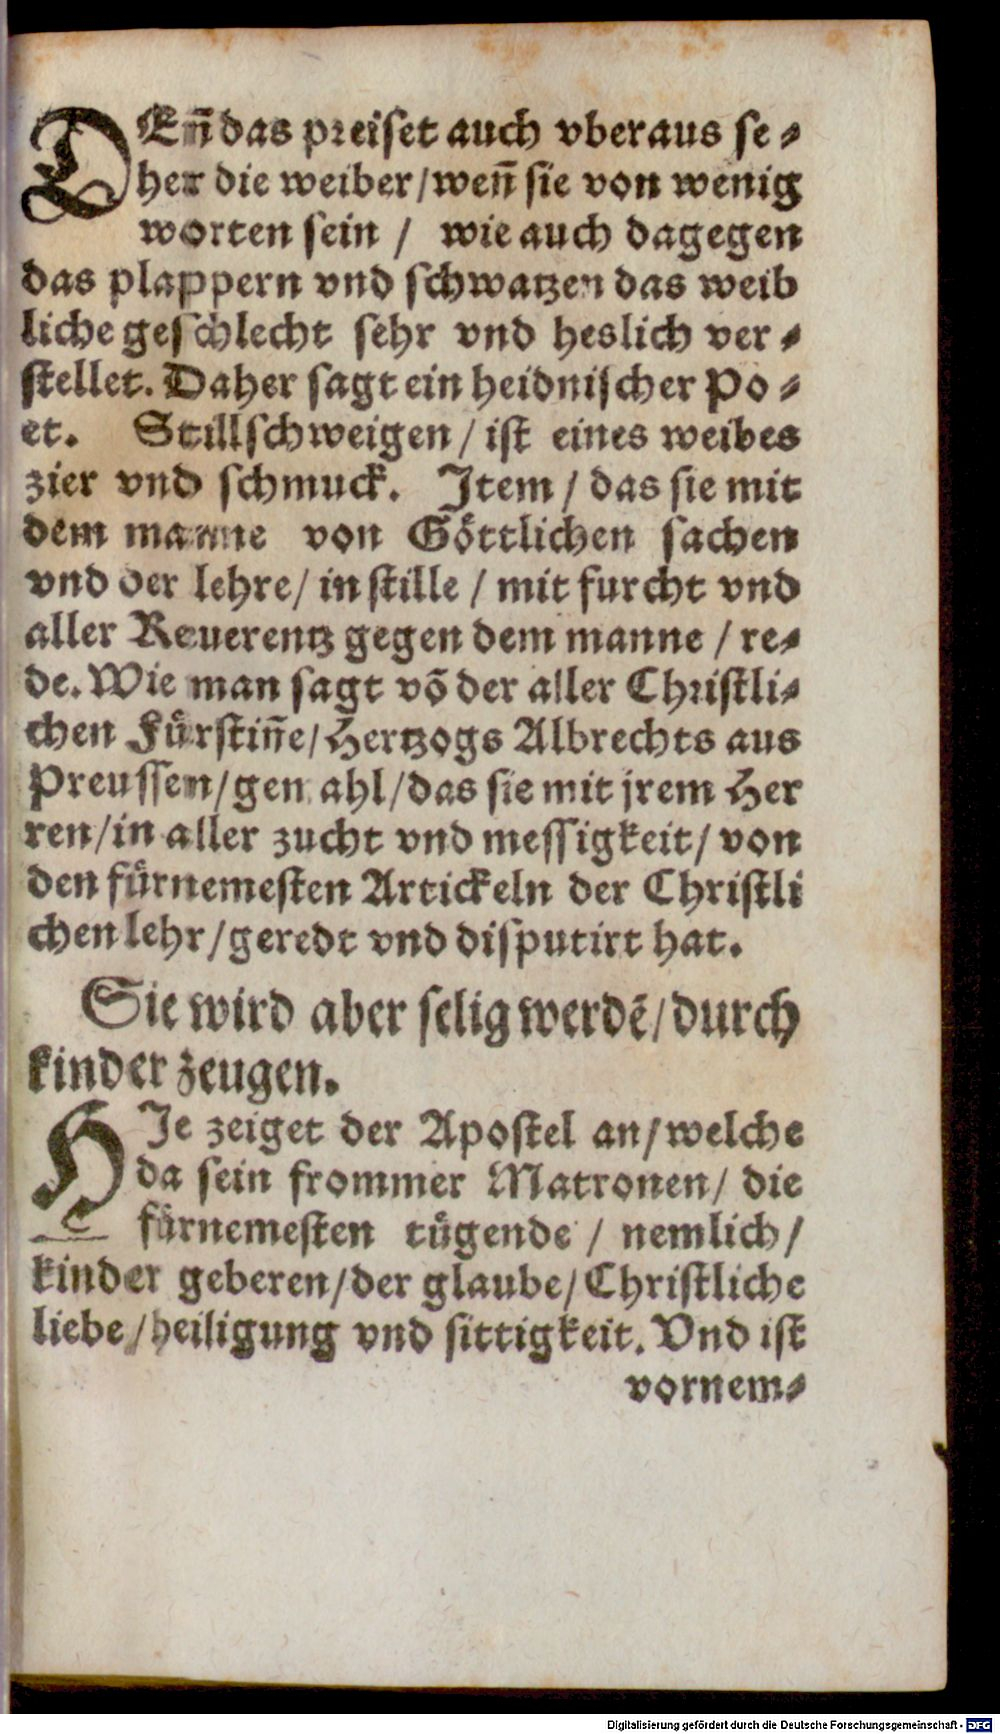 DEñ das preiset auch vberaus se⸗
her die weiber/weñ sie von wenig
worten sein / wie auch dagegen
das plappern vnd schwatzen das weib
liche geschlecht sehr vnd heslich ver⸗
stellet. Daher sagt ein heidnischer Po⸗
et. Stillschweigen/ ist eines weibes
zier vnd schmuck. Item / das sie mit
dem manne von Göttlichen sachen
vnd der lehre/ in stille / mit furcht vnd
aller Reuerentz gegen dem manne / re⸗
de. Wie man sagt võ der aller Christli⸗
chen Fürstiñe/Hertzogs Albrechts aus
Preussen/gemahl/das sie mit jrem Her
ren/in aller zucht vnd messigkeit/ von
den fürnemesten Artickeln der Christli
chen lehr/geredt vnd disputirt hat.
Sie wird aber selig werdẽ/durch
kinder zeugen.
HIe zeiget der Apostel an/welche
da sein frommer Matronen/ die
fürnemesten tügende / nemlich/
kinder geberen/der glaube/Christliche
liebe/heiligung vnd sittigkeit. Vnd ist
vornem⸗
Digitalisierung gefördert durch die Deutsche Forschungsgemeinschaft - DFG